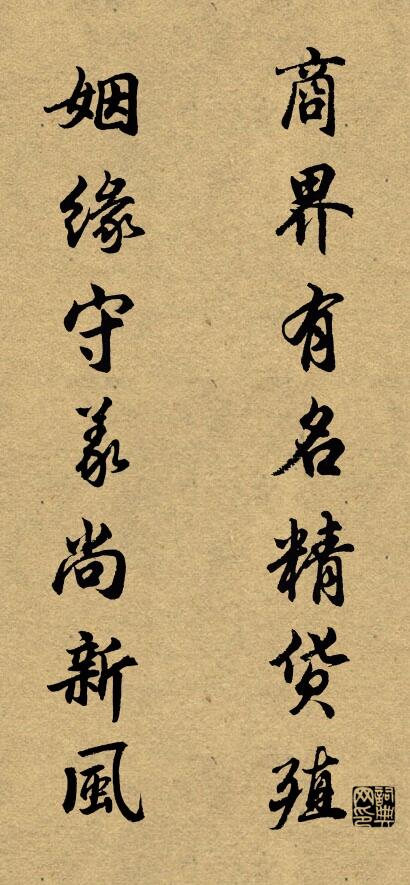 商界有名精货殖
姻缘守義尚新風
詞典网印